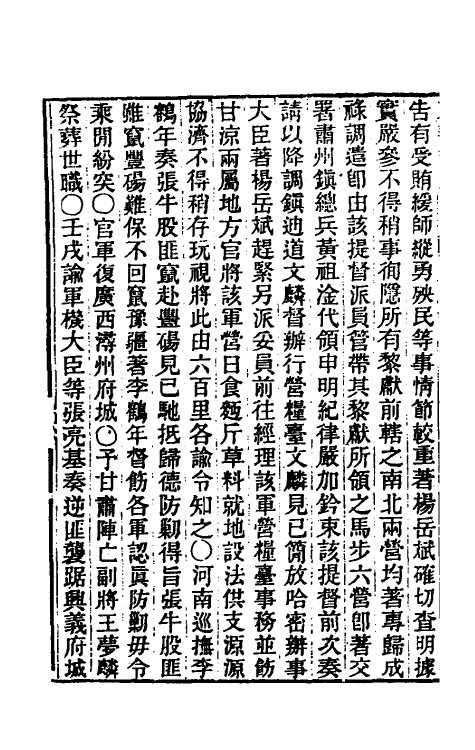 告有受賄縱師縱勇殃民等事情節較重著楊岳斌確切查明據
實嚴參不得稍事徇隱所有黎獻前轄之南北兩營均著專歸成
祿調遣卽由該提督派員管帶其黎獻所領之馬步六營卽著交
署肅州鎭總兵黃祖淦代領申明紀律嚴加鈐束該提督前次奏
請以降調鎭迪道文麟督辦行營糧臺文麟見已簡放哈密辦事
大臣著楊岳斌趕緊另派妥員前往經理該軍營糧臺事務並飭
甘涼兩屬地方官將該軍營日食麪斤草料就地設法供支源源
協濟不得稍存玩視將此由六百里各諭令知之○河南巡撫李
鶴年奏張牛股匪竄赴豐碭見已馳抵歸德防勦得旨張牛股匪
雖竄豐碭難保不回竄豫疆著李鶴年督飭各軍認眞防勦毋令
乘閒紛突○官軍復廣西潯州府城○予甘肅陣亡副將王夢麟
祭葬世職○壬戌諭軍機大臣等張亮基奏逆匪襲踞興義府城